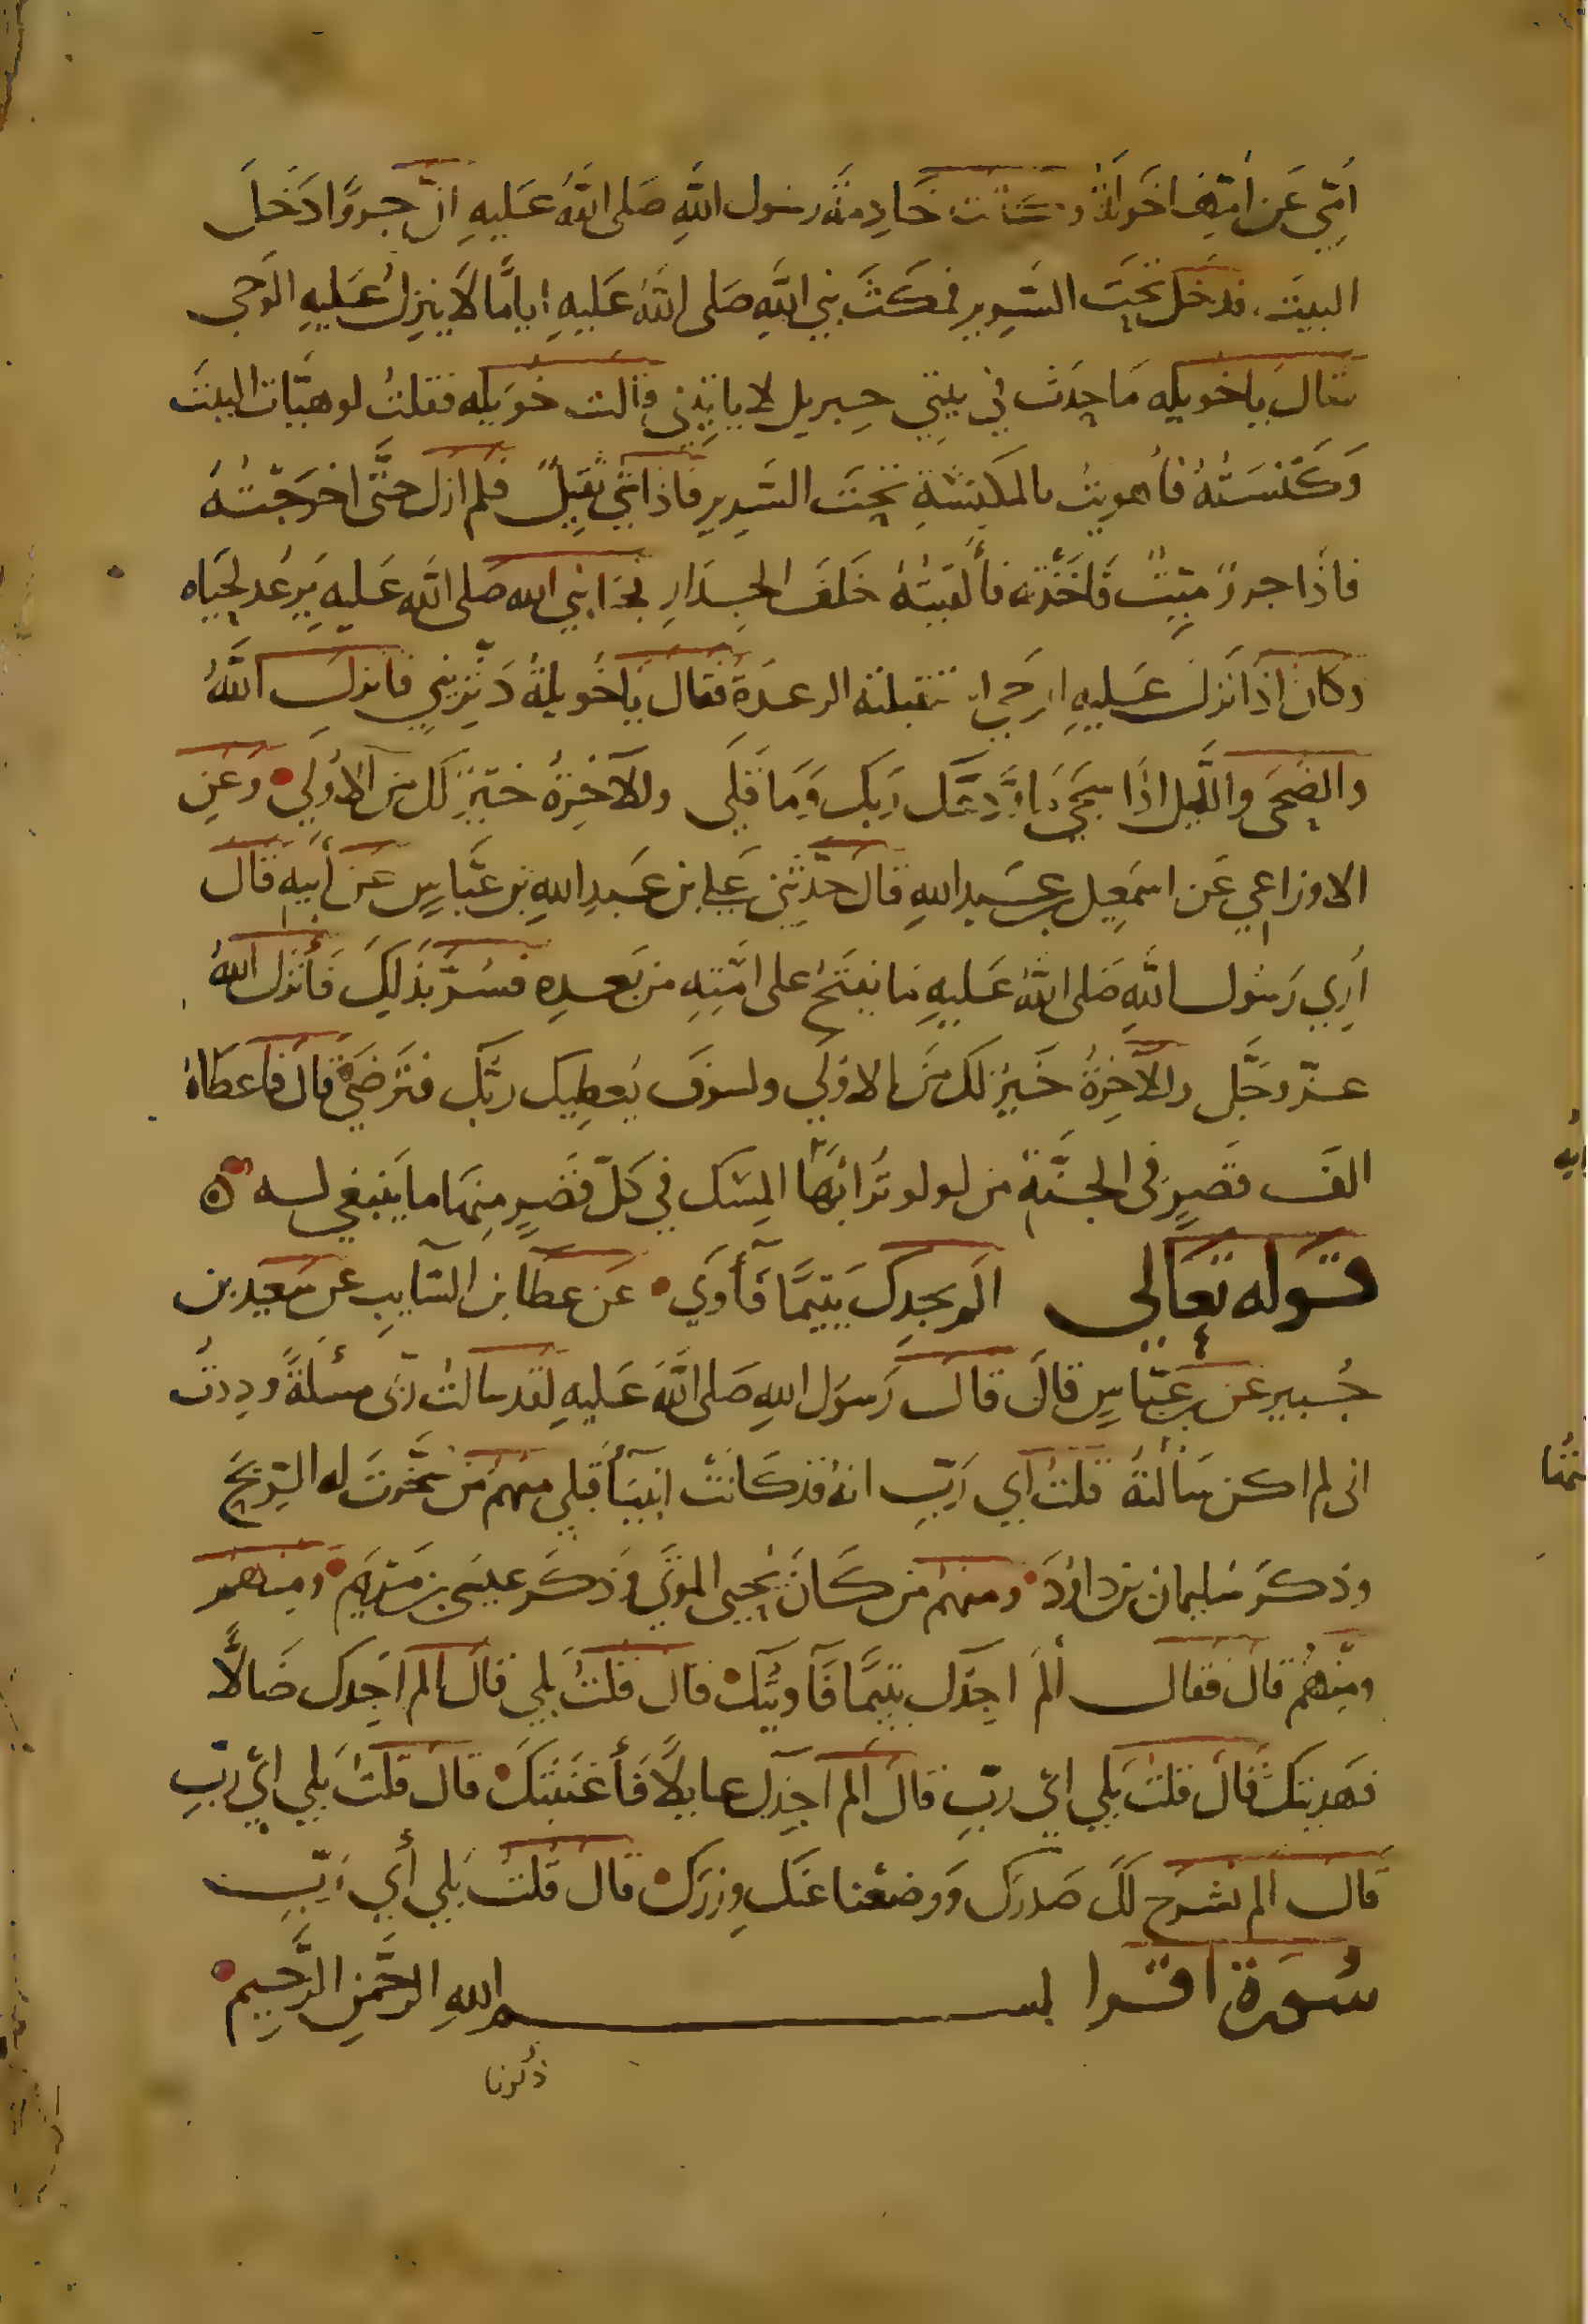 اُمِّي عَن امّها خَوَلة وكانت خَادِمَة رسول اللَّهِ صَلى اللَّهُ عَليهِ انّ جروًا دَخَلَ
البيتَ فدخل تحتَ السَّرير فمكثَ نبي اللَّهِ صَلى اللَّهُ عَليهِ ايامًا لاَ ينزل عَليهِ الوَحي
فقالَ ياخويله مَا حِدَث في بيتي جبريل لا ياتيني قالت خوَيله فقلتُ لو هيّات البيتَ
وَكنستُهُ فأهويتُ بالمكنسَةِ تحتَ السَّريرِ فاذا شي ثقيلٌ فلم ازل حتَّى اخرَجتُهُ
فاذا جروٌ ميّتٌ فَاخَذته فألقيتُهُ خلفَ الجدَارِ فجا نبي الله صَلى اللَّه عَليهِ يَرعد لحيَاه
وكان اذا نزلَ عَليهِ الوحي استقبلته الرعدَة فقال ياخُويلةُ دَثّرِيني فانزلَ اللَّهُ
والضحَى واللَّيل اذا سَجَى مَا وَدَّعَكَ رَبك وَمَا قَلَى وللآخِرَةُ خيرٌ لكَ من الأُولي وَعَن
الاوزاعي عَن اسمعِيل بن عبَيد اللهِ قالَ حدّثني عَلي بن عَبدِ اللهِ بن عبَّاسٍ عَن أبيهِ قال
اُرِي رَسُول اللَّهِ صَلى اللَّهُ عَليهِ مَا يفتَحُ على امّتِهِ من بَعدِهِ فسُرَّ بذَلِكَ فَأنزل اللهُ
عزّ وجَلّ وللآخِرَةُ خَيرٌ لكَ منَ الاولي ولسَوفَ يُعطِيك ربّك فتَرضَى قال فاعطاهُ
الفَ قصرٍ في الجنّة من لولو تُرابُهَا المِسك في كلّ قَصرٍ مِنهَا ما يَنبغي له ه
قَوله تعَالى الم يجدك يَتيمًا فَأوَي عَن عطا بن السَّايبِ عَن سَعيد بن
جُبير عن بن عَبّاسٍ قالَ قال رَسول اللهِ صَلى اللَّهُ عَليهِ لقد سالتُ ربّى مسئلةً وددتُ
انى لم اكن سَألتهُ قلت أي رَبّ انهُ قد كَانت انبيَأ قبلي منهم من سخّرتَ له الرِّيحَ
وذكرَ سُليمان بن داوُدَ ومنهم من كَانَ يُحيى الموتَي وذكرَ عيسَى بن مَريَم ومنهم
ومِنهُم قالَ فقال ألمَ اجدكَ يتيمًا فَآويتكَ قال قلتُ بَلي قالَ الم اجِدك ضَالًّا
فهَديتكَ قالَ قلتُ بَلي ايْ ربّ قالَ الم اجِدكَ عايلًا فَأغنَيتكَ قال قلتُ بَلي ايْ ربّ
قال الم نشرح لكَ صَدرَك وَوضعنا عَنك وِزرَك قال قلتُ بَلي أي رَبّ
سُورَة اقرا بسم اللهِ الرحَّمن الرَّحِيم
ذُكرنا